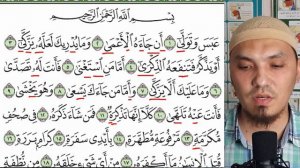 بِسْمِ اللَّهِ الرَّحْمَٰنِ الرَّحِيمِ
عَبَسَ وَتَوَلَّىٰٓ ١ أَن جَآءَهُ ٱلْأَعْمَىٰ ٢ وَمَا يُدْرِيكَ لَعَلَّهُۥ يَزَّكَّىٰٓ ٣
أَوْ يَذَّكَّرُ فَتَنفَعَهُ ٱلذِّكْرَىٰٓ ٤ أَمَّا مَنِ ٱسْتَغْنَىٰ ٥ فَأَنتَ لَهُۥ تَصَدَّىٰ
٦ وَمَا عَلَيْكَ أَلَّا يَزَّكَّىٰ ٧ وَأَمَّا مَن جَآءَكَ يَسْعَىٰ ٨ وَهُوَ يَخْشَىٰ ٩
فَأَنتَ عَنْهُ تَلَهَّىٰ ١٠ كَلَّآ إِنَّهَا تَذْكِرَةٌ ١١ فَمَن شَآءَ ذَكَرَهُۥ ١٢ فِى صُحُفٍ
مُّكَرَّمَةٍ ١٣ مَّرْفُوعَةٍ مُّطَهَّرَةٍۭ ١٤ بِأَيْدِى سَفَرَةٍ ١٥ كِرَامٍۭ بَرَرَةٍ ١٦
قُتِلَ ٱلْإِنسَٰنُ مَآ أَكْفَرَهُۥ ١٧ مِنْ أَىِّ شَىْءٍ خَلَقَهُۥ ١٨ مِن نُّطْفَةٍ